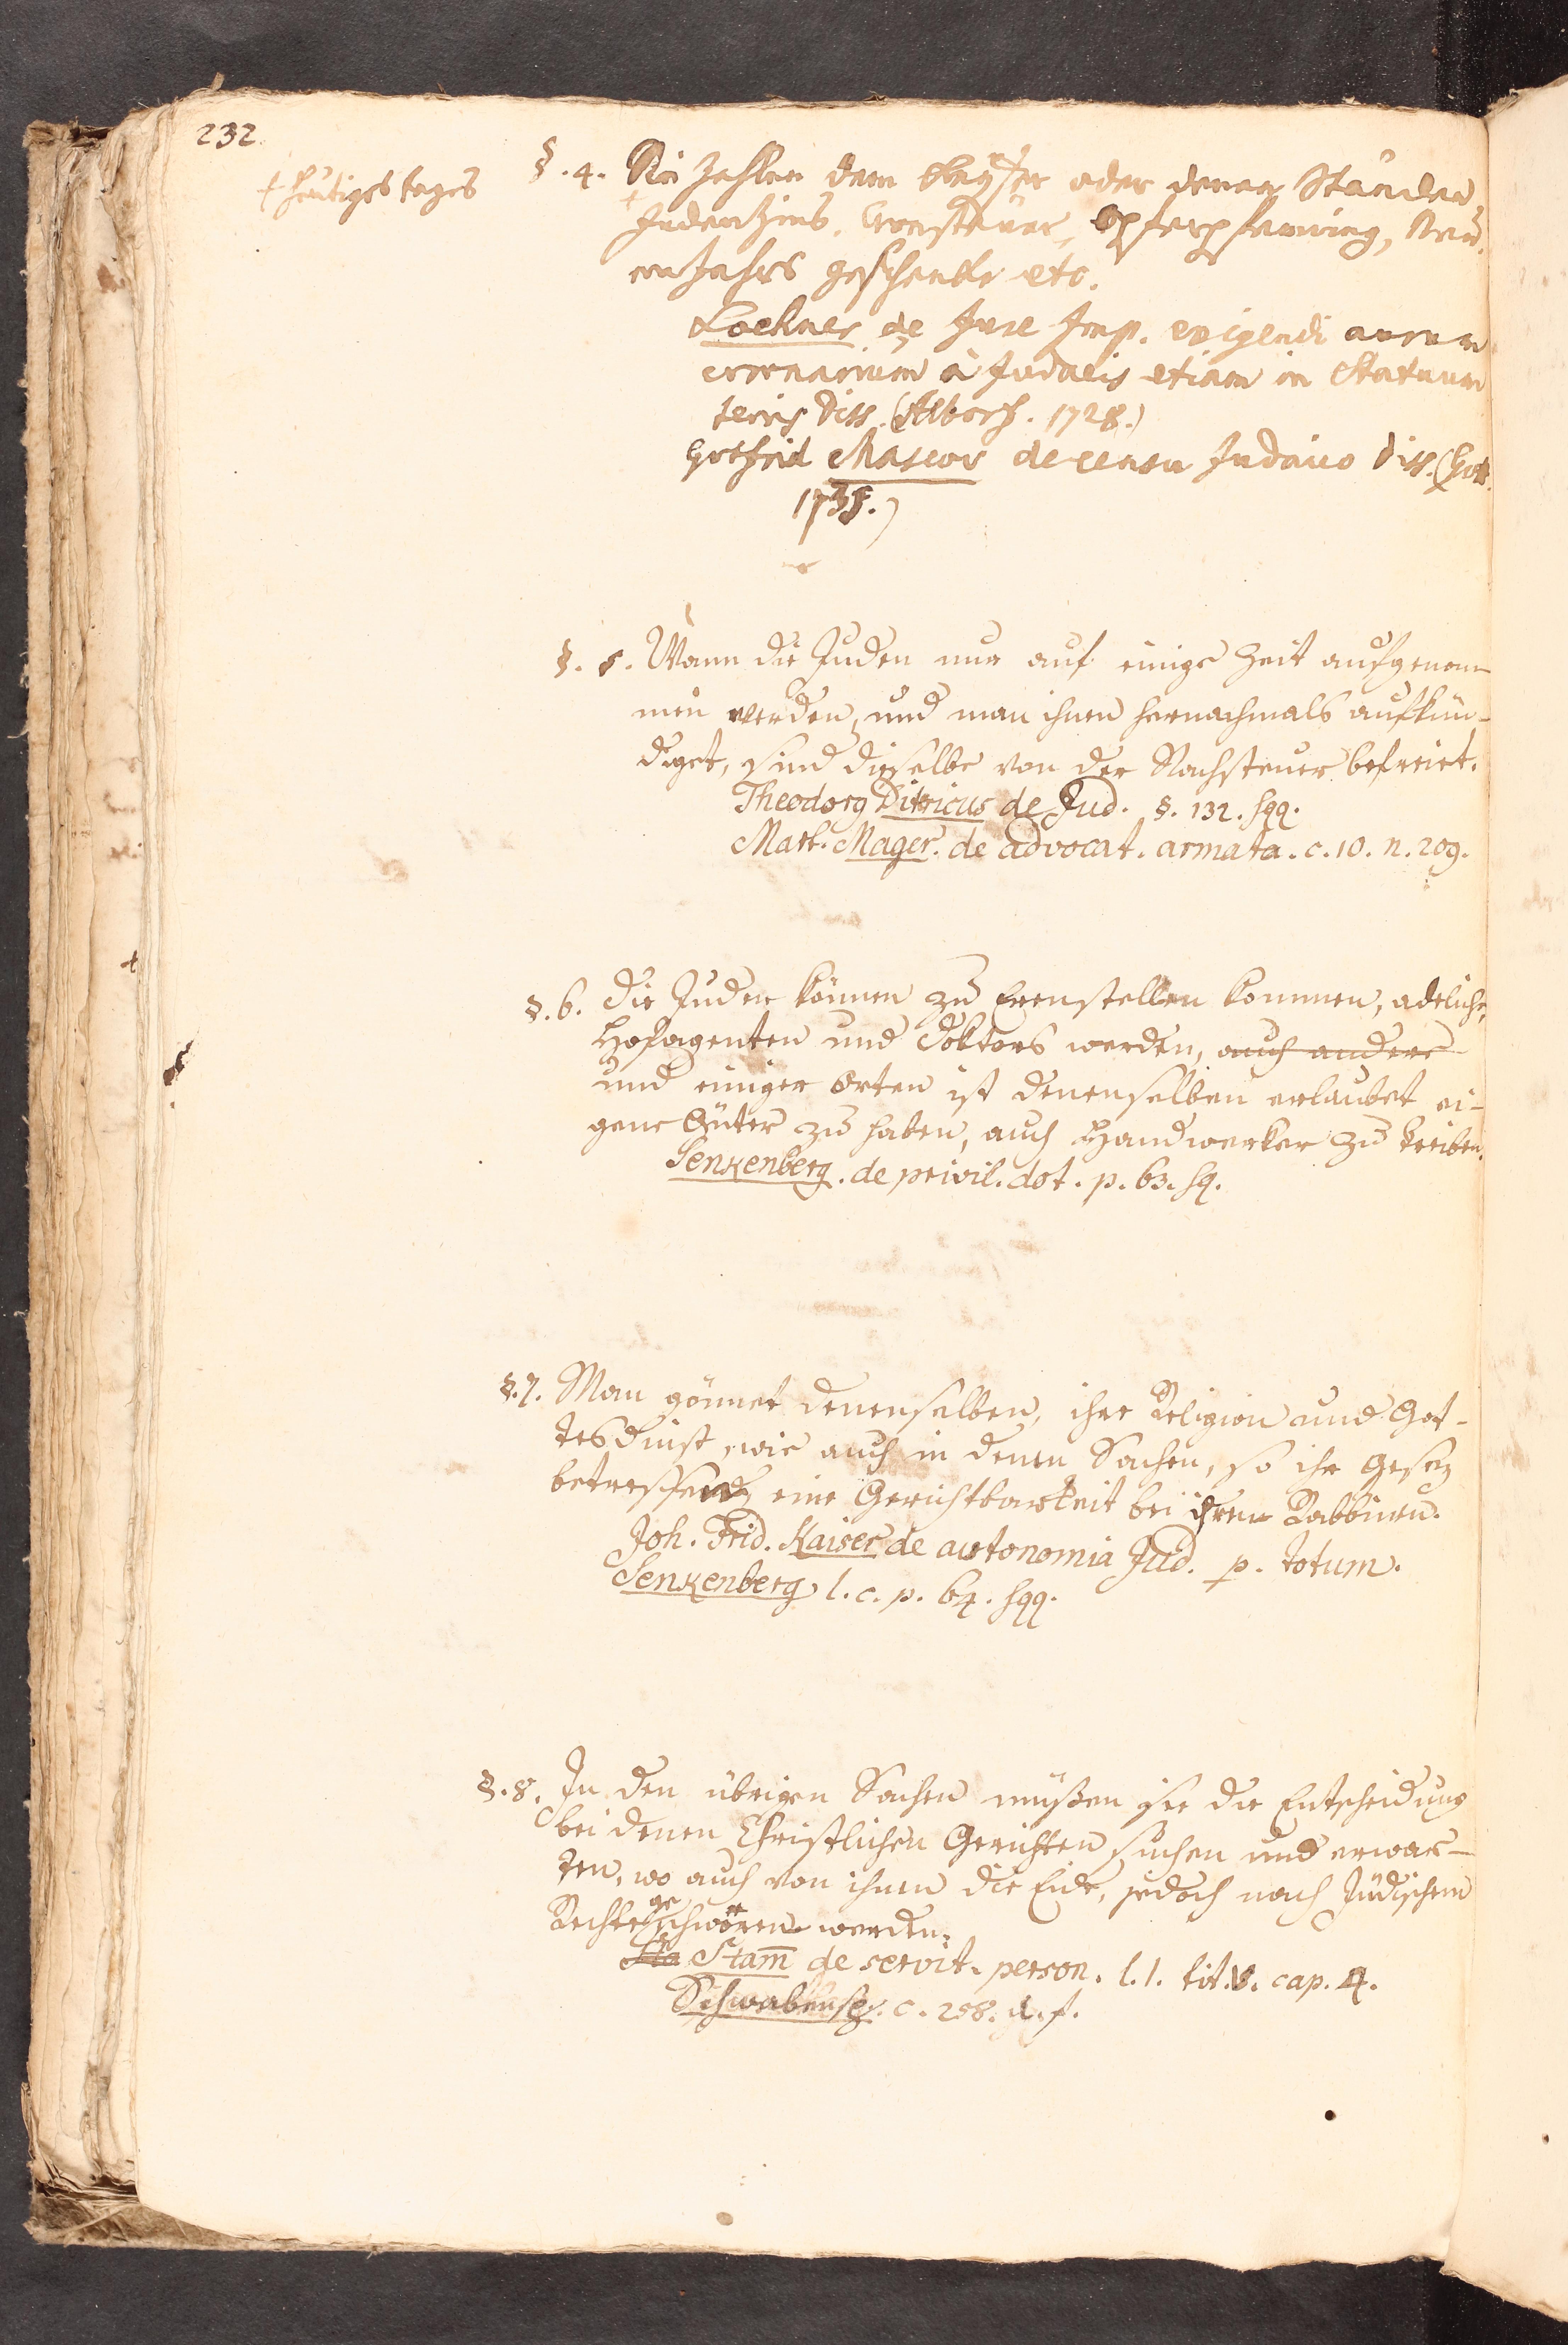 232
+ heutiges tages
§. 4. Sie zahlen dem Kayser oder denen Ständen,
+ Judenzins, Cronsteüer, Opferpfenning, Neü
enJahrs geschenke etc.
Lochner de Jure Imp. exigendi aurum
coronarium à Judaeis etiam in Statuum
terris Diss. (Altorf. 1728.)
Gotfrid Mascov de censu Judaico Diss. (Gott.
1735.)
§. 5. Wann die Juden nur auf einige Zeit aufgenom-
men werden, und man ihnen hernachmals aufkün-
diget, sind dieselbe von der Nachsteuer befreiet.
Theodorg Ditricus de Jud. §. 132. sqq.
Math. Mager. de advocat. armata. c. 10. n. 209.
§. 6. Die Juden können zu Erenstellen kommen, adeliche,
Hofagenten und Doktors werden, auch andere
und einiger Orten ist denenselben erlaubet ei-
gene Güter zu haben, auch Handwerker zu treiben.
Senkenberg. de privil. dot. p. 63. sq.
§. 7. Man gönnet denenselben, ihre Religion und Got-
tesdinst, wie auch in denen Sachen, so ihr Gesez
betreffend, eine Gerichtbarkeit bei ihren Rabbinen.
Joh. Frid. Kaiser de autonomia Jud. p. totum.
Senkenberg l. c. p. 64. sqq.
§. 8. In den übrigen Sachen müßen sie die Entscheidung
bei denen Christlichen Gerichten suchen und erwar-
ten, wo auch von ihnen die Eide, jedoch nach Jüdischem
Rechte geschworen werden.
Sta Stam̅ de servit. person. l. 1. tit. 3. cap. 4.
Schwabensp. c. 258. u. f.